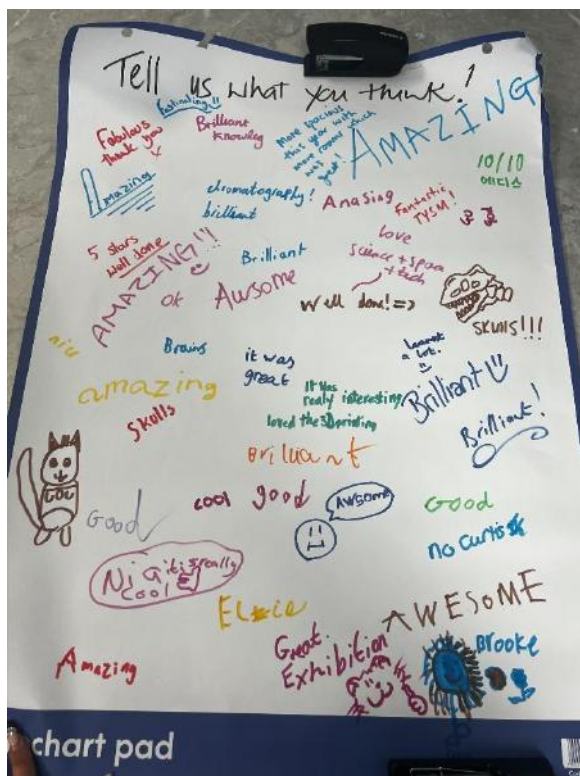 Tell us what you think!
Fascinating!!
Fabulous
thank you
x
Brilliant
knowleg
More spacious
this year with
more room which
was
great!
AMAZING
Amazing
10/10
chromatography!
brilliant
Anasing
Fantastic!
TYSM
5 stars
well done
AMAZING!!
Brilliant
love
science + space
+ tech
ok
Awsome
Well done! =>
SKUllS!!!
nice
Brains
it was
great
Learnt
a lot.
amazing
It was
realy interesting
Brilliant
Skulls
loved the 3D printing
Brilliant!
BRiluant
Good
cool
good
Awsome
Good
no curtis
AWESOME
Great
Exhibition
Brooke
Amazing
chart pad